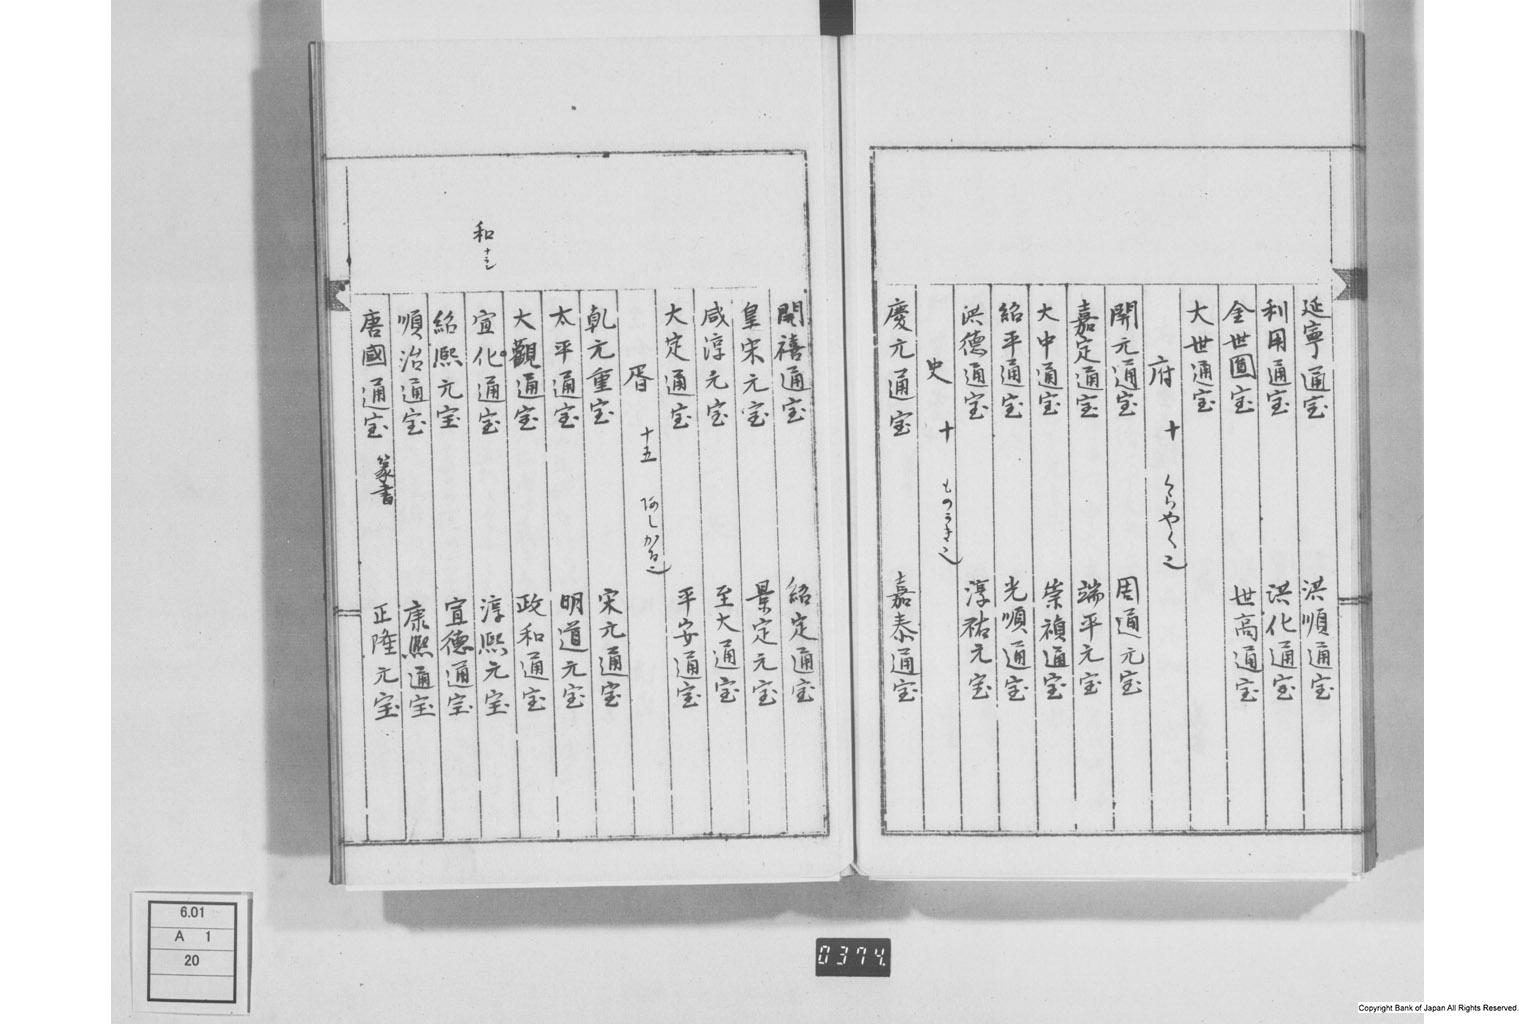 延寧通宝 洪順通宝
利用通宝 洪化通宝
全世圓宝 世高通宝
大世通宝
府 十 くらやくこ
開元通宝 周通元宝
嘉定通宝 端平元宝
大中通宝 崇禎通宝
紹平通宝 光順通宝
洪德通宝 淳祐元宝
史 十
慶元通宝 嘉泰通宝
開禧通宝 紹定通宝
皇宋元宝 景定元宝
咸淳元宝 至大通宝
大定通宝 平安通宝
胥 十五 あしかるこ
乹元重宝 宋元通宝
太平通宝 明道元宝
大觀通宝 政和通宝
和
宣化通宝 淳熙元宝
紹熙元宝 宣德通宝
順治通宝 康熙通宝
唐國通宝 篆書 正隆元宝
6.01
A 1
20
0374
Copyright Bank of Japan All Rights Reserved.